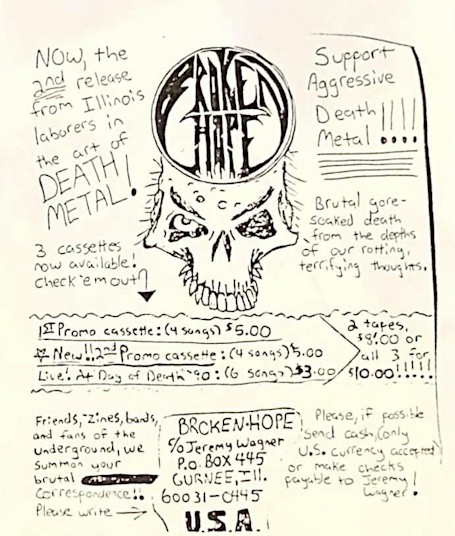 NOW, the
2nd release
from Illinois
laborers in
the art of
DEATH
METAL!
3 cassettes
now available!
check 'em out!
BROKEN
HOPE
Support
Aggressive
Death
Metal!!!!
Brutal gore-
soaked death
from the depths
of our rotting,
terrifying thoughts.
1st Promo cassette: (4 songs) $5.00
☆ New!! 2nd Promo cassette: (4 songs) $5.00
Live! At Day of Death '90: (6 songs) $3.00
2 tapes,
$8.00 or
all 3 for
$10.00!!!!!
Friends, 'Zines, bands,
and fans of the
underground, we
summon your
brutal
Correspondence!!
Please write →
BROKEN-HOPE
c/o Jeremy Wagner
P.O. BOX 445
GURNEE, Ill.
60031-0445
U.S.A.
Please, if possible
send cash, (only
U.S. currency accepted)
or make checks
payable to Jeremy
Wagner!